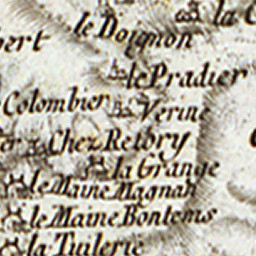 la
le Doignon
bert
le Pradier
Colombier
Verine
Chez Retory
la Grange
le Maine Magnan
le Maine Bontems
la Tuilerie